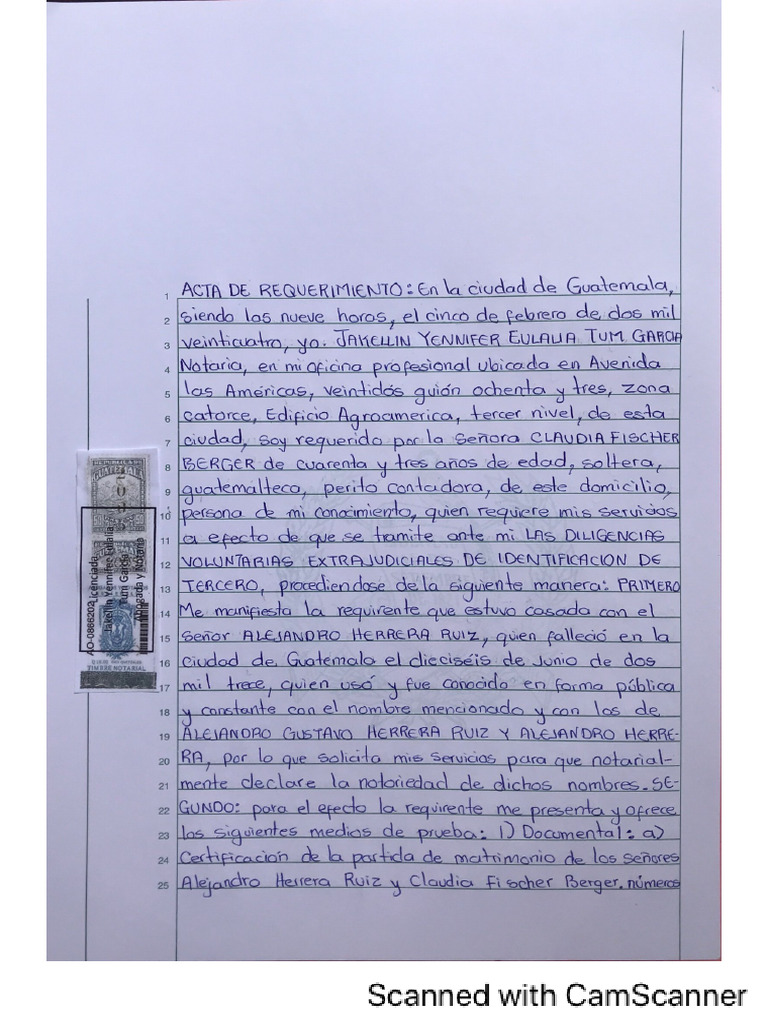 1 ACTA DE REQUERIMIENTO: En la ciudad de Guatemala,
2 siendo las nueve horas, el cinco de febrero de dos mil
3 veinticuatro, yo. JAKELLIN YENNIFER EULALIA TUM GARCIA
4 Notaria, en mi oficina profesional ubicada en Avenida
5 las Américas, veintidós guión ochenta y tres, zona
6 catorce, Edificio Agroamerica, tercer nivel, de esta
7 ciudad, soy requerido por la señora CLAUDIA FISCHER
8 BERGER de cuarenta y tres años de edad, soltera,
9 guatemalteca, perito contadora, de este domicilio,
10 persona de mi conocimiento, quien requiere mis servicios
11 a efecto de que se tramite ante mi LAS DILIGENCIAS
12 VOLUNTARIAS EXTRAJUDICIALES DE IDENTIFICACION DE
13 TERCERO, procediendose de la siguiente manera: PRIMERO
14 Me manifiesta la requirente que estuvo casada con el
15 señor ALEJANDRO HERRERA RUIZ, quien falleció en la
16 ciudad de Guatemala el dieciséis de Junio de dos
17 mil trece, quien usó y fue conocido en forma pública
18 y constante con el nombre mencionado y con los de
19 ALEJANDRO GUSTAVO HERRERA RUIZ Y ALEJANDRO HERRE-
20 RA, por lo que solicita mis servicios para que notarial-
21 mente declare la notoriedad de dichos nombres. SE-
22 GUNDO: para el efecto la requirente me presenta y ofrece
23 los siguientes medios de prueba: 1) Documental: a)
24 Certificación de la partida de matrimonio de los señores
25 Alejandro Herrera Ruiz y Claudia Fischer Berger. números
REPUBLICA DE
GUATEMALA
TIMBRE NOTARIAL
AO-0866202
Licenciada
Jakellin Yennifer Eulalia
Tum García
Abogada y Notaria
Scanned with CamScanner